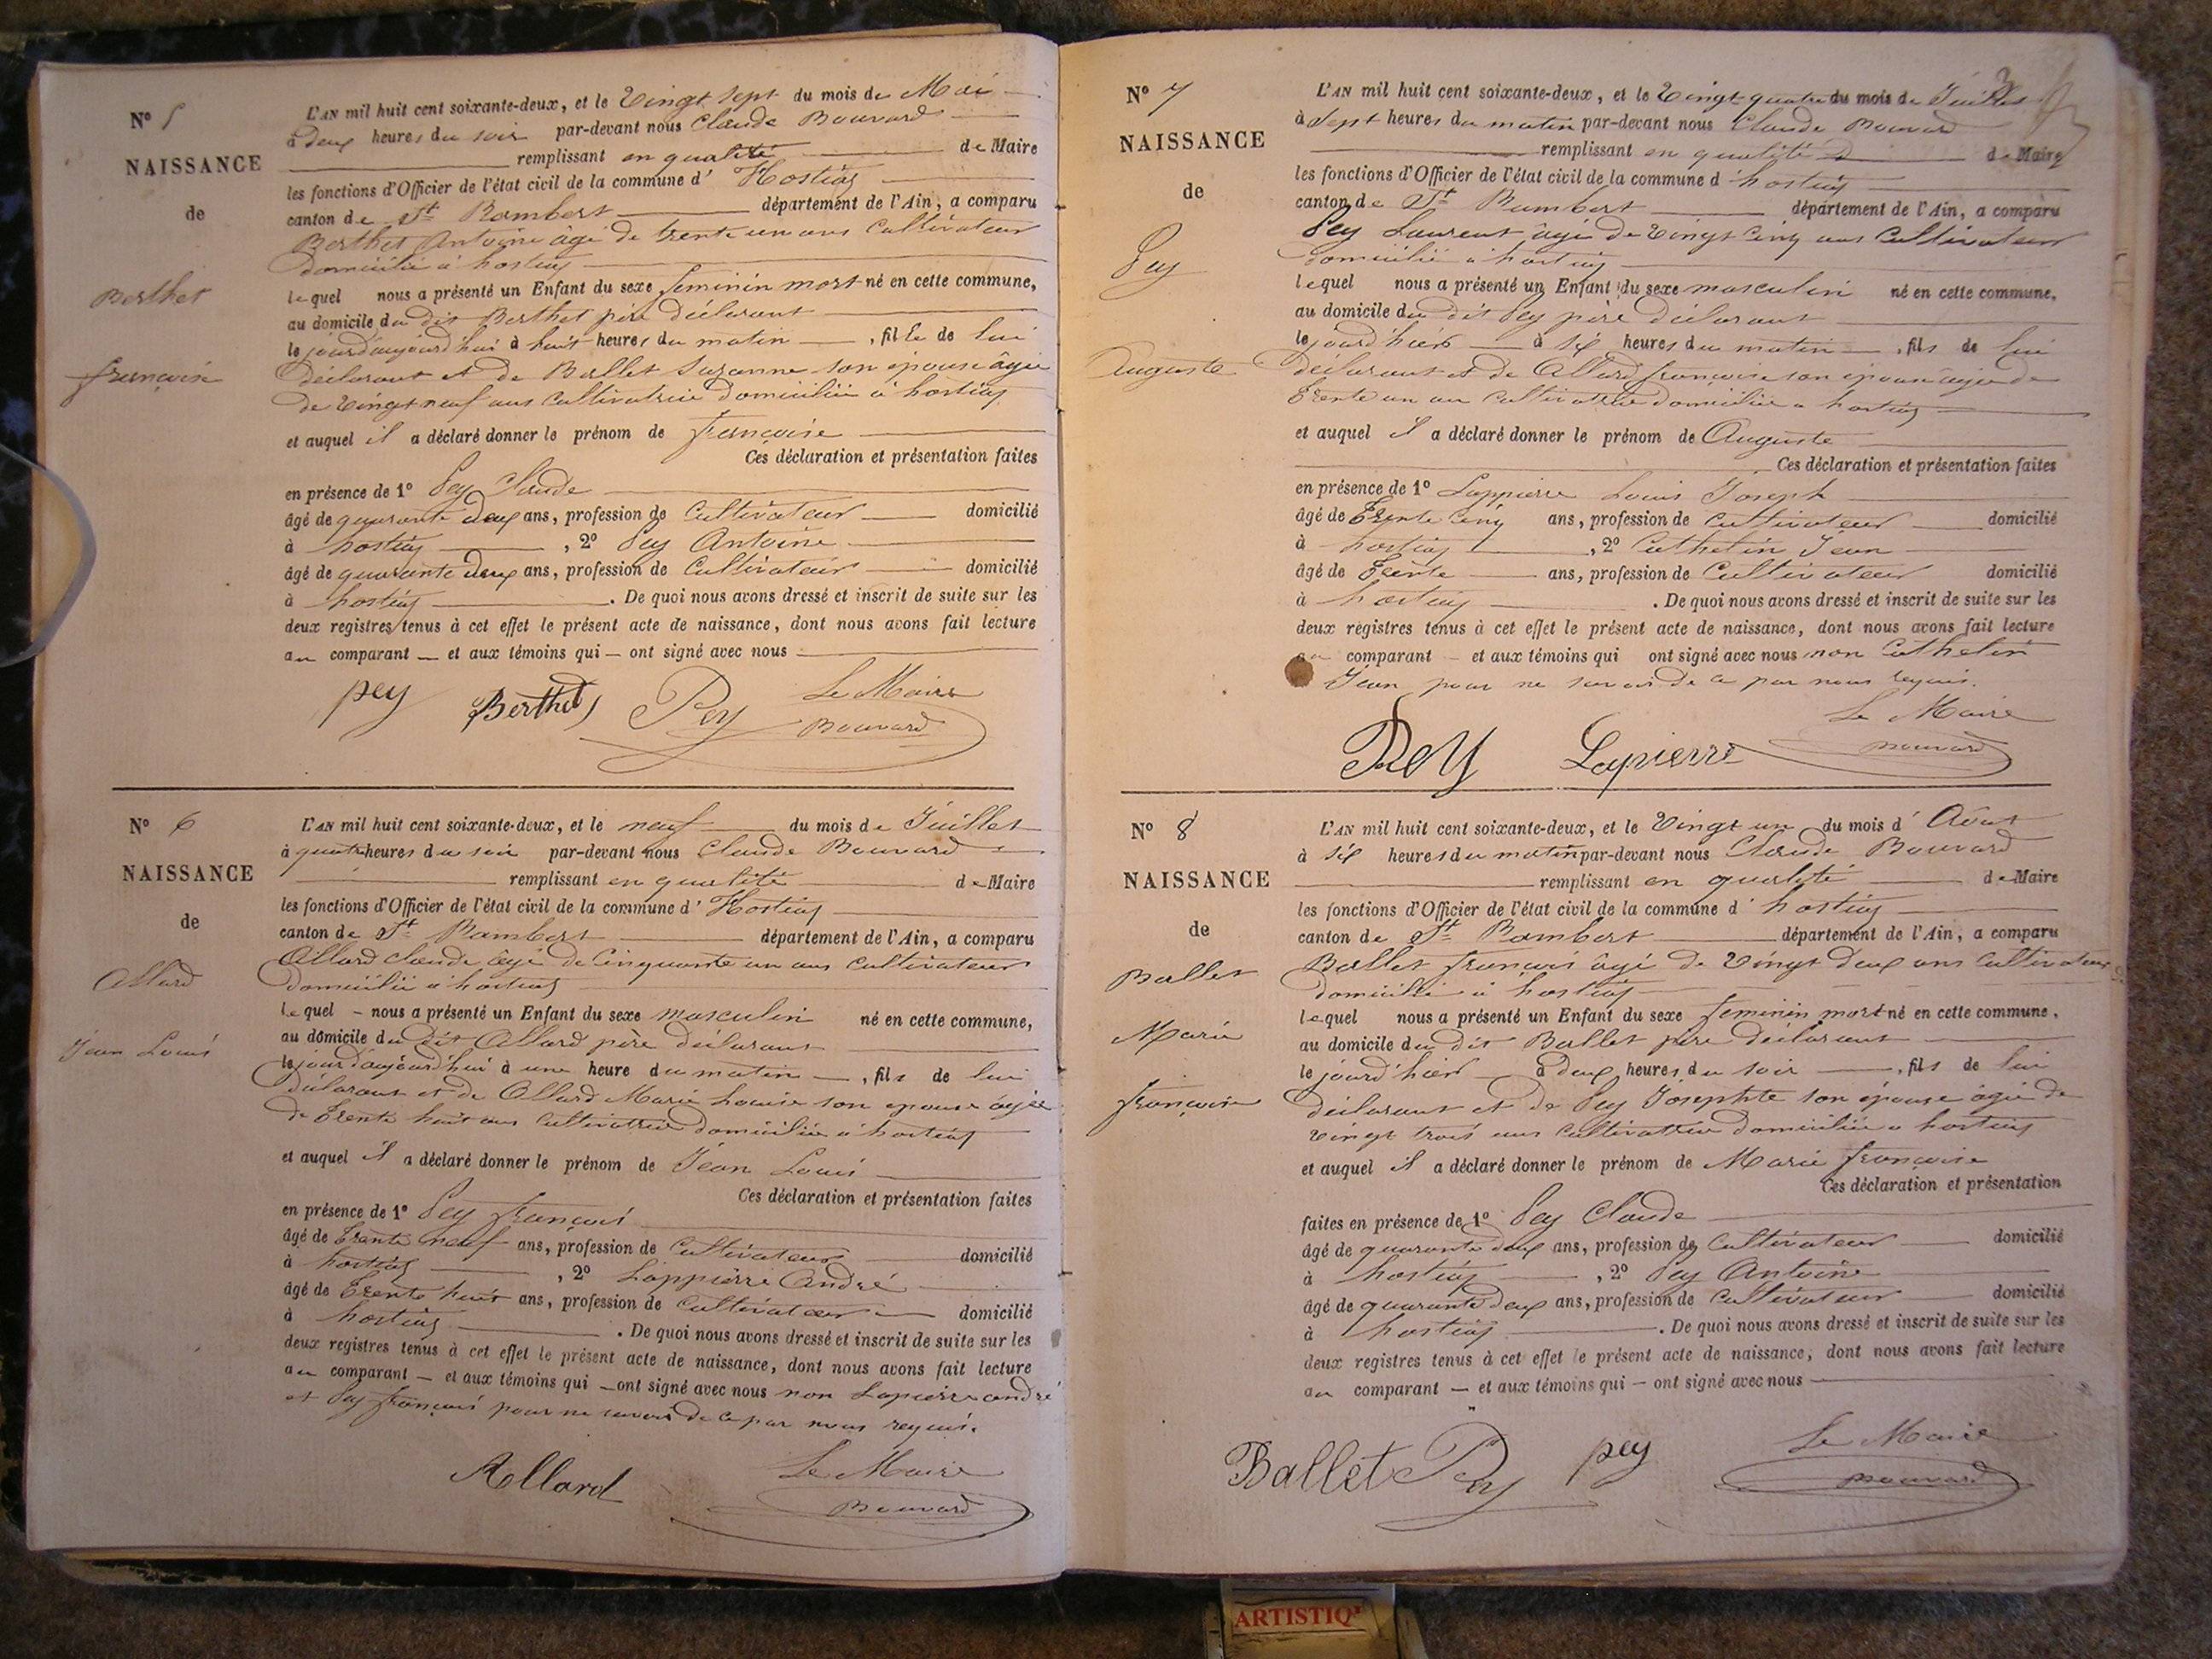 N° 5
NAISSANCE
de
Berthet
françoise
L'AN mil huit cent soixante-deux, et le Vingt sept du mois de Mai
à deux heures du soir par-devant nous Claude Bouvard
remplissant en qualité de Maire
les fonctions d'Officier de l'état civil de la commune d' Hostias
canton de St Rambert département de l'Ain, a comparu
Berthet Antoine âgé de trente un ans Cultivateur
domicilié à hostias
lequel nous a présenté un Enfant du sexe feminin mort né en cette commune,
au domicile du dit Berthet père déclarant
le jourd'aujourd'hui à huit heures du matin , fille de lui
déclarant et de Ballet Suzanne son épouse âgée
de Vingt neuf ans Cultivatrice domiciliée à hostias
et auquel il a déclaré donner le prénom de françoise
Ces déclaration et présentation faites
en présence de 1° Pey Claude
âgé de quarante deux ans, profession de Cultivateur domicilié
à hostias , 2° Pey Antoine
âgé de quarante deux ans, profession de Cultivateur domicilié
à hostias . De quoi nous avons dressé et inscrit de suite sur les
deux registres tenus à cet effet le présent acte de naissance, dont nous avons fait lecture
au comparant — et aux témoins qui — ont signé avec nous
pey Berthet Pey Le Maire
Bouvard
N° 6
NAISSANCE
de
Allard
Jean Louis
L'AN mil huit cent soixante-deux, et le neuf du mois de Juillet
à quatre heures du soir par-devant nous Claude Bouvard
remplissant en qualité de Maire
les fonctions d'Officier de l'état civil de la commune d' Hostias
canton de St Rambert département de l'Ain, a comparu
Allard Claude âgé de Cinquante un ans Cultivateur
domicilié à hostias
lequel - nous a présenté un Enfant du sexe masculin né en cette commune,
au domicile du dit Allard père déclarant
le jourd'aujourd'hui à une heure du matin , fils de lui
déclarant et de Allard Marie Louise son épouse âgée
de trente huit ans Cultivatrice domiciliée à hostias
et auquel il a déclaré donner le prénom de Jean Louis
Ces déclaration et présentation faites
en présence de 1° Pey françois
âgé de trente neuf ans, profession de Cultivateur domicilié
à hostias , 2° Lappierre André
âgé de trente huit ans, profession de Cultivateur domicilié
à hostias . De quoi nous avons dressé et inscrit de suite sur les
deux registres tenus à cet effet le présent acte de naissance, dont nous avons fait lecture
au comparant — et aux témoins qui — ont signé avec nous non Lapierre andré
et Pey françois pour ne savoir de ce par nous requis.
Allard Le Maire
Bouvard
N° 7
NAISSANCE
de
Pey
Auguste
3
L'AN mil huit cent soixante-deux, et le Vingt quatre du mois de Juillet
à Sept heures du matin par-devant nous Claude Bouvard
remplissant en qualité de Maire
les fonctions d'Officier de l'état civil de la commune d' hostias
canton de St Rambert département de l'Ain, a comparu
Pey Laurent âgé de Vingt Cinq ans Cultivateur
domicilié à hostias
lequel nous a présenté un Enfant du sexe masculin né en cette commune,
au domicile du dit Pey père déclarant
le jourd'hier à six heures du matin , fils de lui
déclarant et de Allard françoise son épouse âgée de
trente un an Cultivatrice domiciliée a hostias
et auquel il a déclaré donner le prénom de Auguste
Ces déclaration et présentation faites
en présence de 1° Lappierre Louis Joseph
âgé de trente Cinq ans, profession de Cultivateur domicilié
à hostias , 2° Cathelin Jean
âgé de trente ans, profession de Cultivateur domicilié
à hostias . De quoi nous avons dressé et inscrit de suite sur les
deux registres tenus à cet effet le présent acte de naissance, dont nous avons fait lecture
au comparant — et aux témoins qui ont signé avec nous non Cathelin
Jean pour ne savoir de ce par nous requis.
Le Maire
Pey Lapierre Bouvard
N° 8
NAISSANCE
de
Ballet
Marie
françoise
L'AN mil huit cent soixante-deux, et le Vingt un du mois d' Aout
à six heures du matin par-devant nous Claude Bouvard
remplissant en qualité de Maire
les fonctions d'Officier de l'état civil de la commune d' hostias
canton de St Rambert département de l'Ain, a comparu
Ballet françois âgé de Vingt deux ans Cultivateur
domicilié à hostias
lequel nous a présenté un Enfant du sexe feminin mort né en cette commune,
au domicile du dit Ballet père déclarant
le jourd'hier à deux heures du soir , fils de lui
déclarant et de Pey Josephte son épouse âgée de
vingt trois ans Cultivatrice domiciliée a hostias
et auquel il a déclaré donner le prénom de Marie françoise
Ces déclaration et présentation
faites en présence de 1° Pey Claude
âgé de quarante deux ans, profession de Cultivateur domicilié
à hostias , 2° Pey Antoine
âgé de quarante deux ans, profession de Cultivateur domicilié
à hostias . De quoi nous avons dressé et inscrit de suite sur les
deux registres tenus à cet effet le présent acte de naissance, dont nous avons fait lecture
au comparant — et aux témoins qui — ont signé avec nous
Ballet Pey pey Le Maire
Bouvard
ARTISTIQ